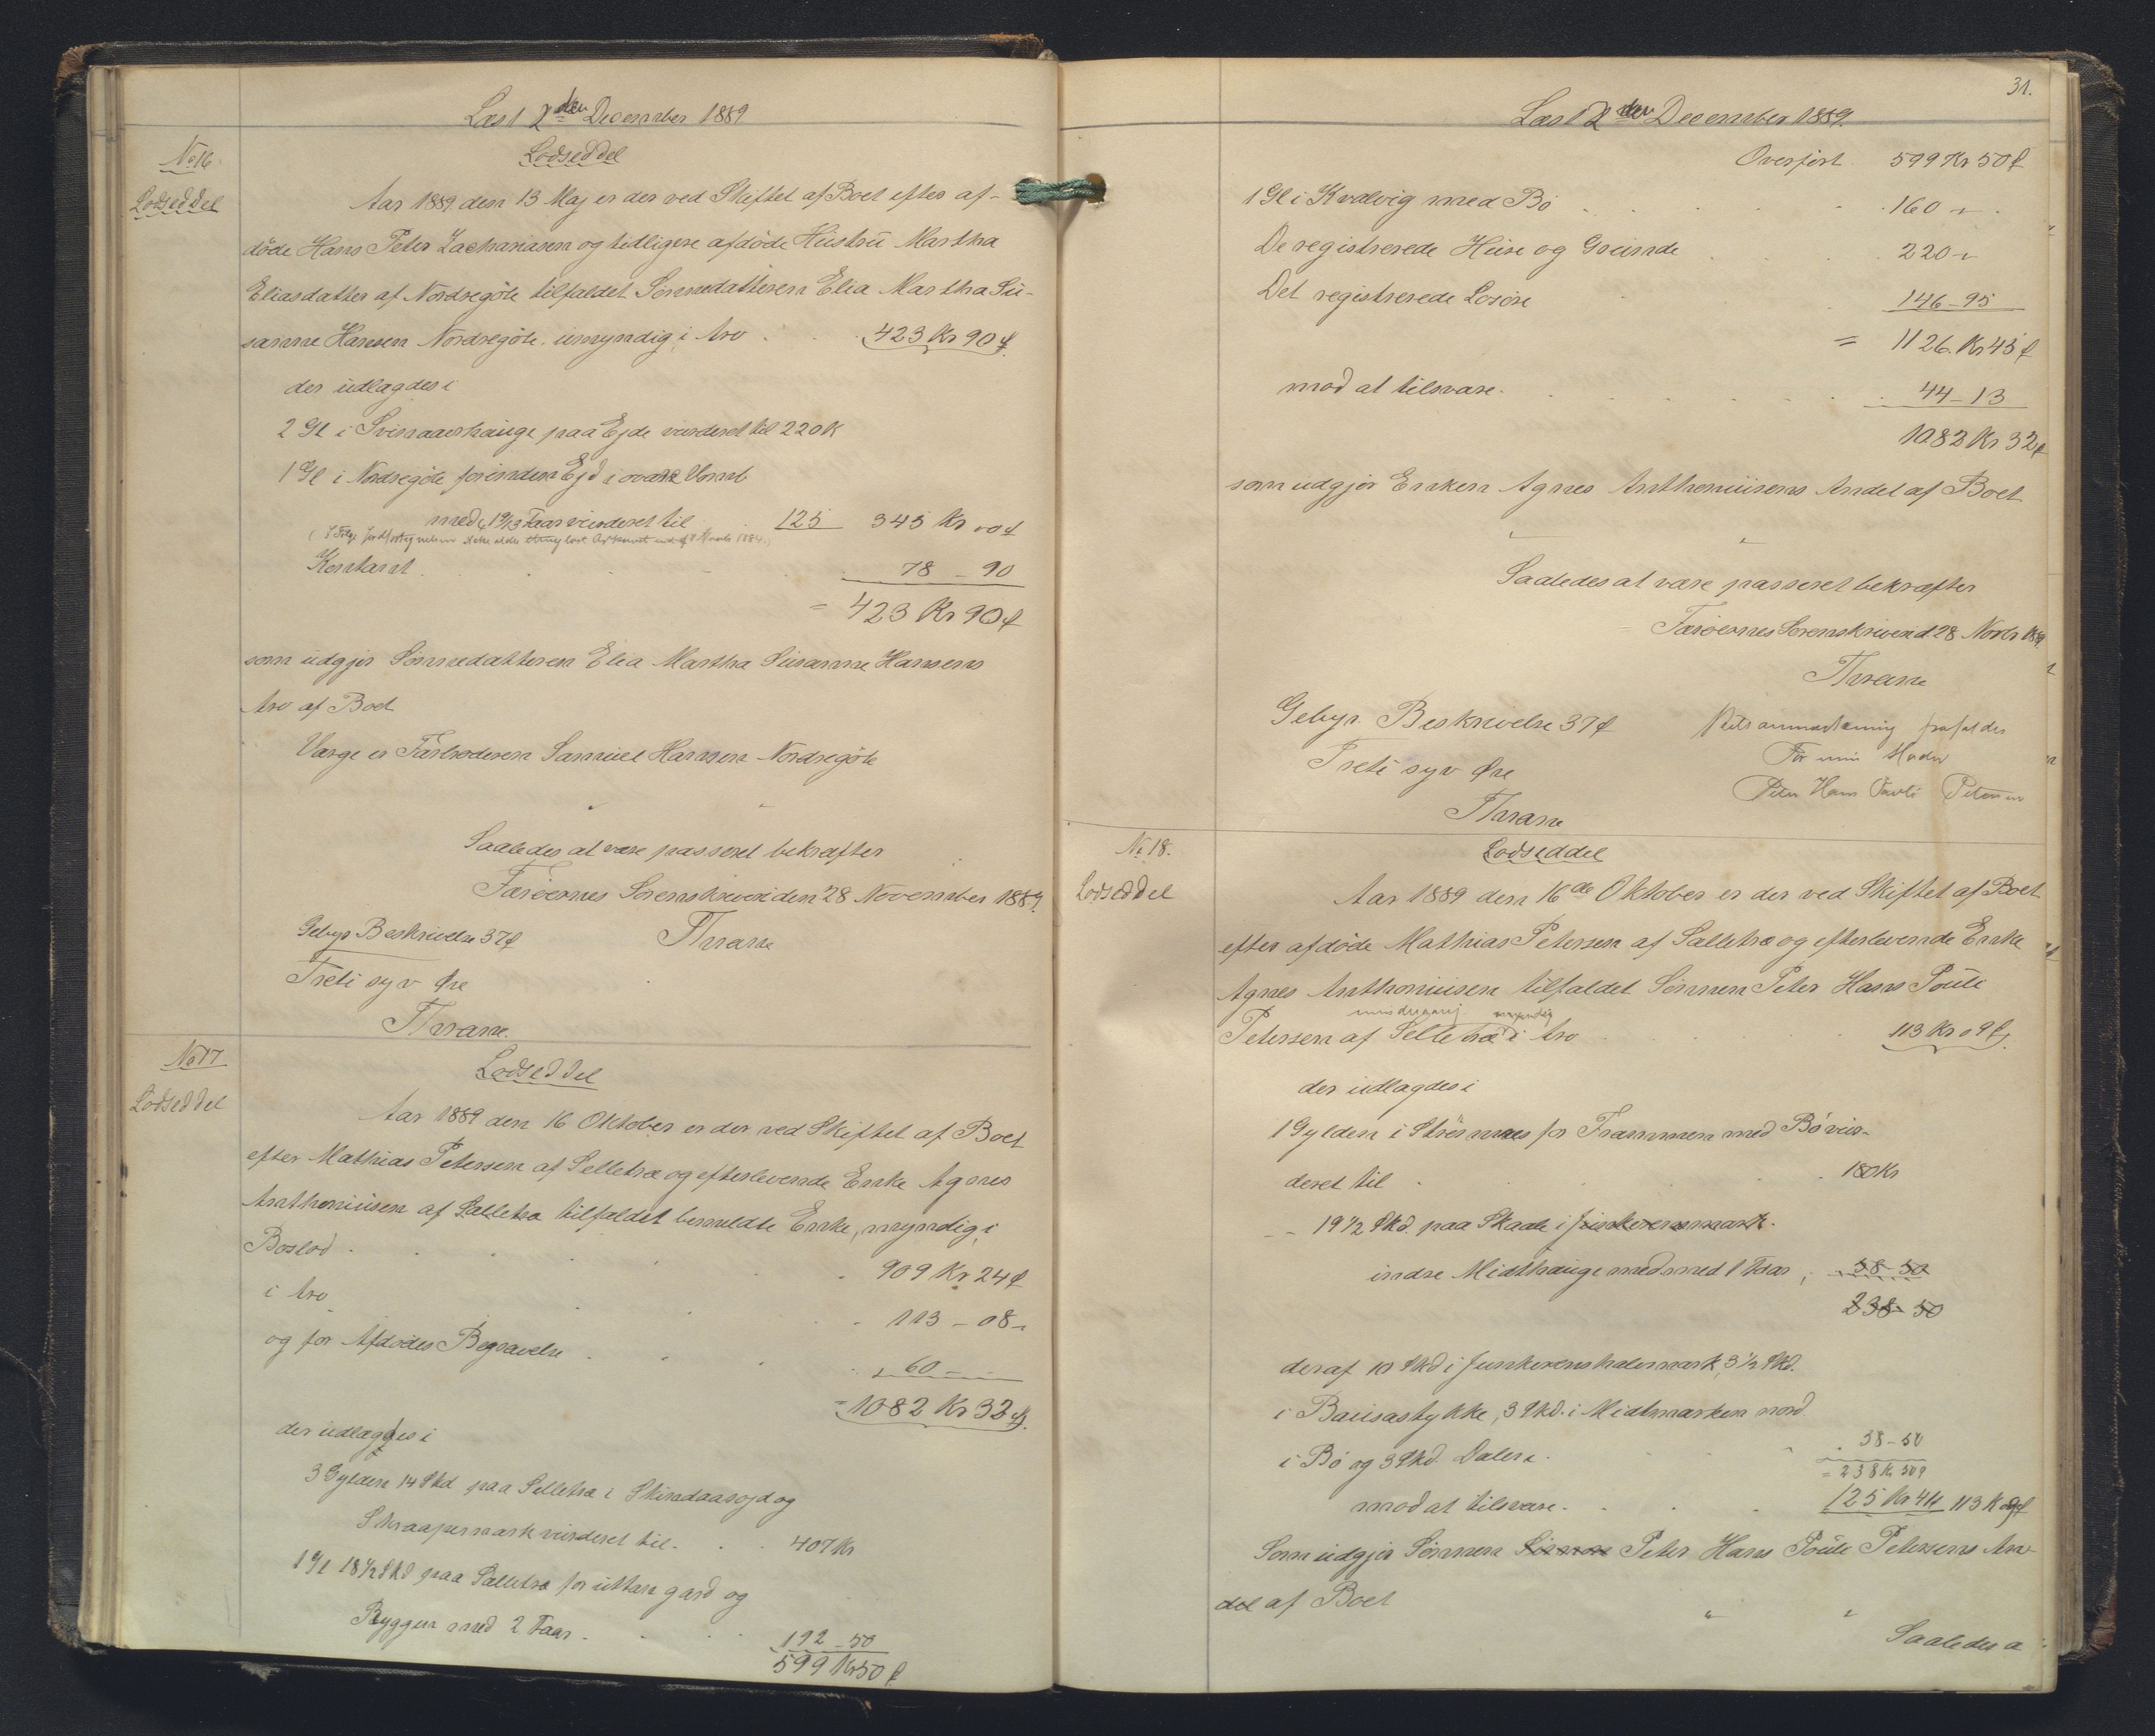 Læst 2den December 1889
No 16
Lodseddel
Lodseddel
Aar 1889 den 13 Maj er der ved Skiftet af Boet efter af-
döde Hans Peter Zachariasen og tidligere afdöde Hüstrü Martha
Eliasdatter af Nordregöte tilfaldet Sönnedatteren Elia Martha Sü-
sanne Hansen Nordregöte, ümyndig i Arv 423 Kr 90 ø
der üdlagdes i
2 Gl i Svinaaeshaüge paa Ejde vurderet til 220 K
1 Gl i Nordregöte
med 1 9/13 Faar vürderet til 125 345 Kr 00 ø
Kontant 78 - 90
= 423 Kr 90 ø
som üdgjör Sönnedatteren Elia Martha Süsanne Hansens
Arv af Boet
Værge er Farbroderen Samüel Hansen Nordregöte
Saaledes at være passeret bekræfter
Færöernes Sorenskriveri den 28 November 1889.
Gebyr Beskrivelse 37 ø Thrane
Treti syv Øre
Thrane.
No 17
Lodseddel
Lodseddel
Aar 1889 den 16 Oktober er der ved Skiftet af Boet
efter Mathias Petersen af Selletræ og efterlevende Enke Agnes
Anthoniüsen af Selletræ tilfaldet bemeldte Enke, myndig, i
Boslod 909 Kr 24 ø
i Arv 113 - 08 -
og for Afdödes Begravelse 60 -
= 1082 Kr 32 ø
der üdlægges i
3 Gylden 14 Skd paa Selletræ i og
vürderet til 407 Kr
1 Gl 18 1/2 Skd paa Selletræ for üttan gard og
Ryggen med 2 Faar 192 - 50
599 Kr 50 ø
31.
Læst 2den December 1889.
Overfört 599 Kr 50 ø
1 Gl i Kvalvig med Bö 160 -
De registrerede Hüse og Gründe 220 -
Det registrerede Lösöre 146 - 95
= 1126. Kr 45 ø
mod at tilsvare. 44 - 13
1082 Kr 32 ø
som üdgjör Enken Agnes Anthoniüsens Andel af Boet
Saaledes at være passeret bekræfter
Færöernes Sorenskriveri d 28 Novbr 1889.
Thrane
Gebyr. Beskrivelse 37 ø
Treti syv Øre
Thrane
Retsanmærkning frafaldes
For min Moder
Peter Hans Povli Petersen
No 18.
Lodseddel
Lodseddel
Aar 1889 den 16de Oktober er der ved Skiftet af Boet
efter afdöde Mathias Petersen af Selletræ og efterlevende Enke
Agnes Anthoniüsen tilfaldet Sönnen Peter Hans Poüli
mindreaarig myndig
Petersen af Selletræ i Arv 113 Kr 09 ø
der üdlagdes i
1 Gylden i Strömnæs for Frammen med Bö vür-
deret til 180 Kr
19 1/2 Skd. paa Skaale i Jünkerensmark.
indre Midthaüge med med 1 Faar, 58 - 50
238 - 50
deraf 10 Skd i Junkerenshalemark, 3 1/2 Skd.
i Baüsastykke, 3 Skd. i Midtmarken nord
i Bö og 3 Skd. Dalen. 58 - 50
= 238 K 50 ø
mod at tilsvare. 125 Kr 41 ø 113 K 09 ø
Som üdgjör Sönnen Sönnen Peter Hans Poüli Petersens An-
del af Boet
Saaledes a